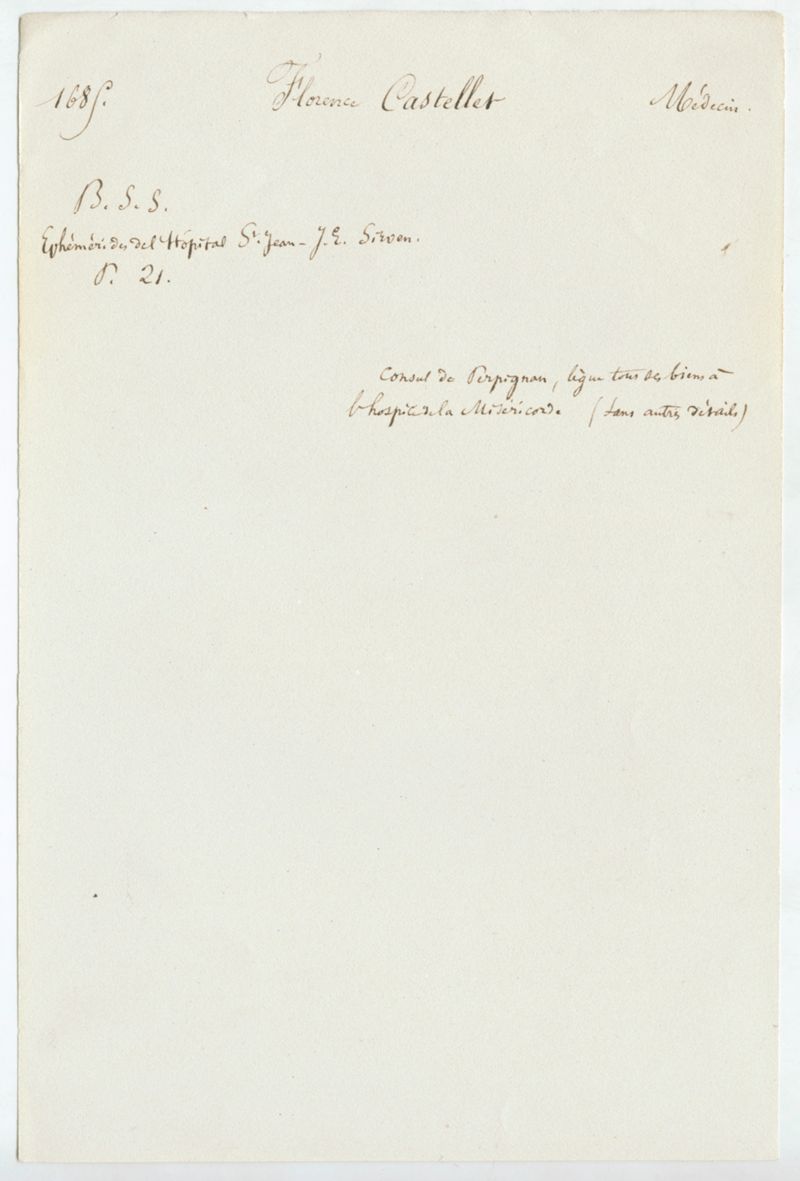 1685. Florence Castellet Médecin.
B. S. S.
Ephémérides de l'Hôpital St. Jean - J. E. Sirven.
P. 21.
Consul de Perpignan, lègue tous ses biens à
l'hospice de la Miséricorde (sans autres détails)